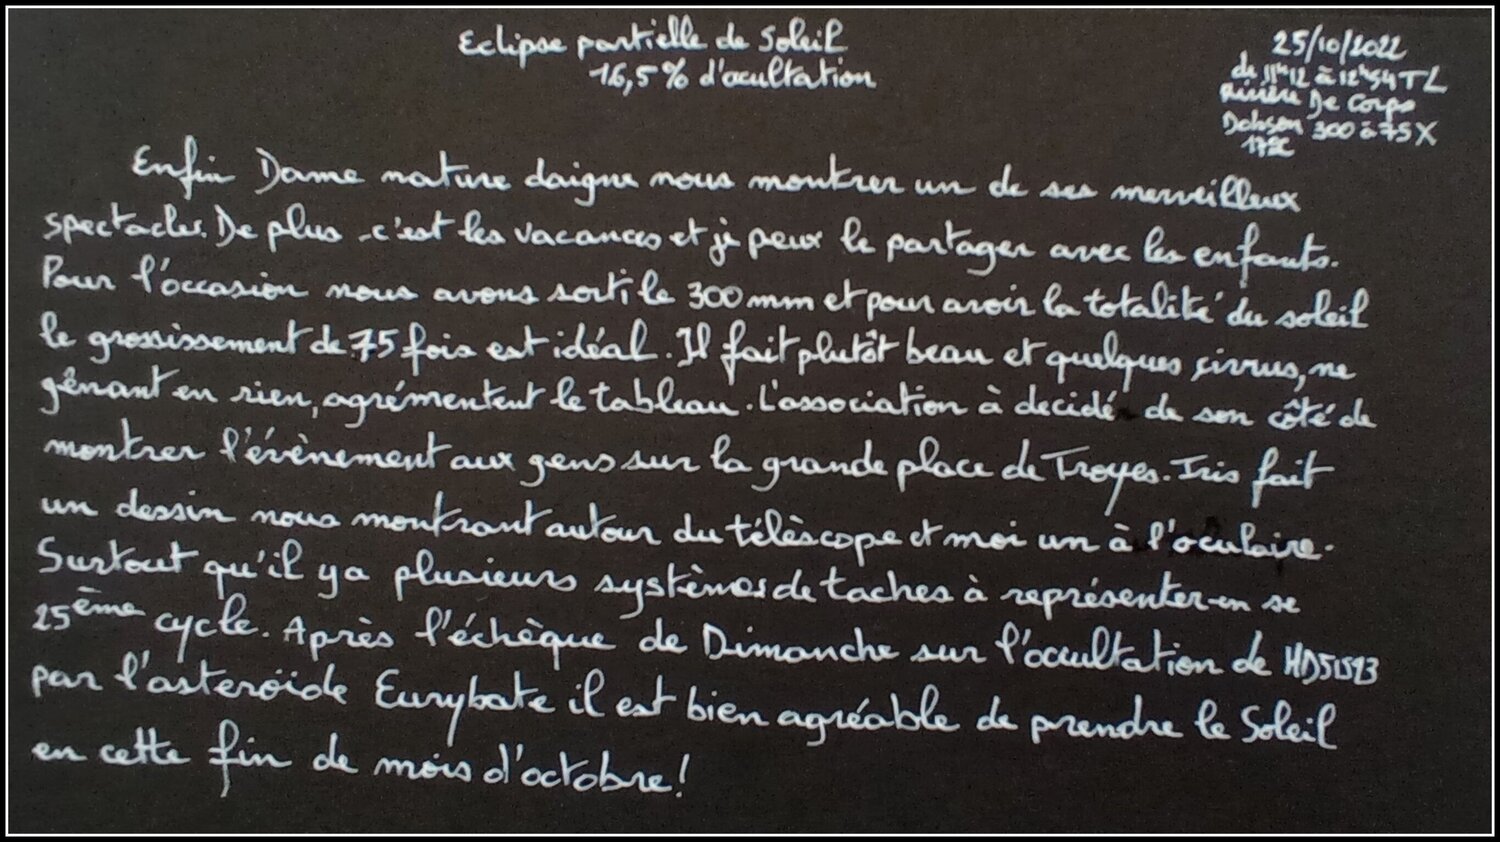 Eclipse partielle de Soleil
16,5% d'acultation
25/10/2022
de 11h12 à 12h54 TL
Rivière De Corps
Dobson 300 à 75X
17°C
Enfin Dame nature daigne nous montrer un de ses merveilleux
spectacles. De plus c'est les vacances et je peux le partager avec les enfants.
Pour l'occasion nous avons sorti le 300mm et pour avoir la totalité du soleil
le grossissement de 75 fois est idéal. Il fait plutôt beau et quelques cirrus, ne
gênant en rien, agrémentent le tableau. L'association à decidé de son côté de
montrer l'évènement aux gens sur la grande place de Troyes. Iris fait
un dessin nous montrant autour du télèscope et moi un à l'oculaire.
Surtout qu'il y a plusieurs systèmes de taches à représenter en se
25ème cycle. Après l'échèque de Dimanche sur l'occultation de
par l'asteroïde Eurybate il est bien agréable de prendre le Soleil
en cette fin de mois d'octobre!